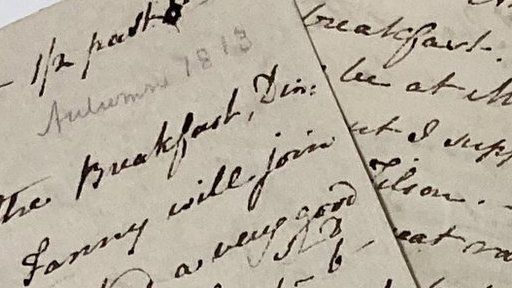 - 1/2 past 8
Autumn 1813
the Breakfast, Din:
Fanny will join
a very good
breakfast.
be at M
I supp
Tilson. -
eat